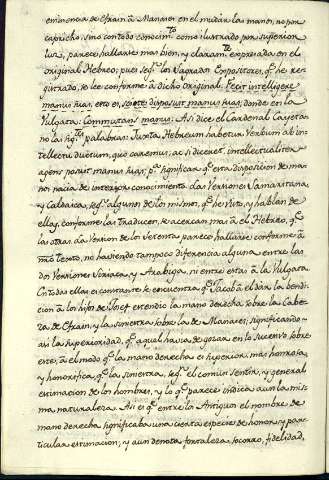 eminencia de Efrain a Manases en el mudar las manos, no por
capricho, sino con todo conocimto. como ilustrado por superior
luz, parece hallarse mas bien, y claramte. expresada en el
original Hebreo; pues segn. los sagrados Expositores, qe. he re-
gistrado, se lee conforme a dicho original: Fecit intelligere
manus suas, esto es, scite disposuit manus suas; donde en la
Vulgata: Commutans manus. Asi dice el Cardenal Cayeta-
no las sigtes. palabras: Iuxta Hebreum habetur Verbum ab in-
tellectu ductum, quo caremus, ac si diceret, intellectualiter
agens posuit manus suas; pa. significar qe. esta disposicion de ma-
nos nacia de interior conocimiento. Las Versiones Samaritana,
y Caldaica, segn. algunos de los mismos, qe. he visto, y hablan de
ellas, conforme las traducen, se acercan mas a el Hebreo, qe.
las otras. La Version de los Setenta parece hallarse conforme a
nro. texto, no haviendo tampoco diferencia alguna entre las
dos Versiones Siriaca, y Arabiga, ni entre estas a la Vulgata.
En todas ellas es constante se encuentra qe. Jacob a el dar la bendi-
cion a los hijos de Josef extendio la mano derecha sobre la Cabe-
za de Efrain, y la siniestra sobre la de Manases; significando-
sele la superioridad, qe. aquel havia de gozar en lo sucesivo sobre
este; a el modo qe. la mano derecha es superior, mas honrosa,
y honorifica, qe. la siniestra, segn. el comun sentir, y general
estimacion de los hombres, y lo qe. parece indica aun la mis-
ma naturaleza. Asi es qe. entre los Antiguos el nombre de
mano derecha significaba una cierta especie de honor, y par-
ticular estimacion; y aun denota fortaleza, socorro, fidelidad,